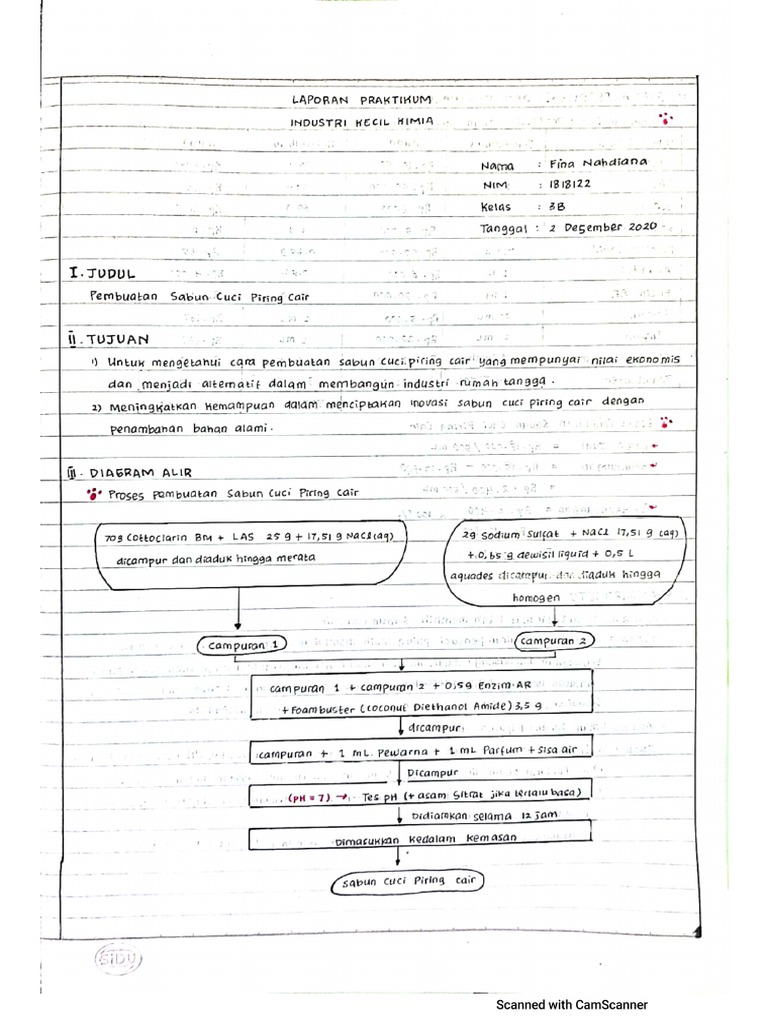 LAPORAN PRAKTIKUM
INDUSTRI KECIL KIMIA
Nama : Fina Nahdiana
NIM : 1818122
Kelas : 3B
Tanggal : 2 Desember 2020
I. JUDUL
Pembuatan Sabun Cuci Piring Cair
II. TUJUAN
1) Untuk mengetahui cara pembuatan sabun cuci piring cair yang mempunyai nilai ekonomis
dan menjadi alternatif dalam membangun industri rumah tangga.
2) Meningkatkan kemampuan dalam menciptakan inovasi sabun cuci piring cair dengan
penambahan bahan alami.
III. DIAGRAM ALIR
Proses Pembuatan Sabun Cuci Piring Cair
70g Cottoclarin BM + LAS 25 g + 17,51 g NaCl (aq)
dicampur dan diaduk hingga merata
2g Sodium Sulfat + NaCl 17,51 g (aq)
+ 0,65 g dewisil liquid + 0,5 L
aquades dicampur dan diaduk hingga
homogen
Campuran 1
Campuran 2
Campuran 1 + Campuran 2 + 0,5g Enzim AR
+ Foambuster (Coconut Diethanol Amide) 3,5 g
dicampur
Campuran + 1 mL Pewarna + 1 mL Parfum + sisa air
Dicampur
(pH = 7) → Tes pH (+ asam sitrat jika terlalu basa)
Didiamkan selama 12 jam
Dimasukkan kedalam kemasan
Sabun Cuci Piring Cair
1
SIDU
Scanned with CamScanner